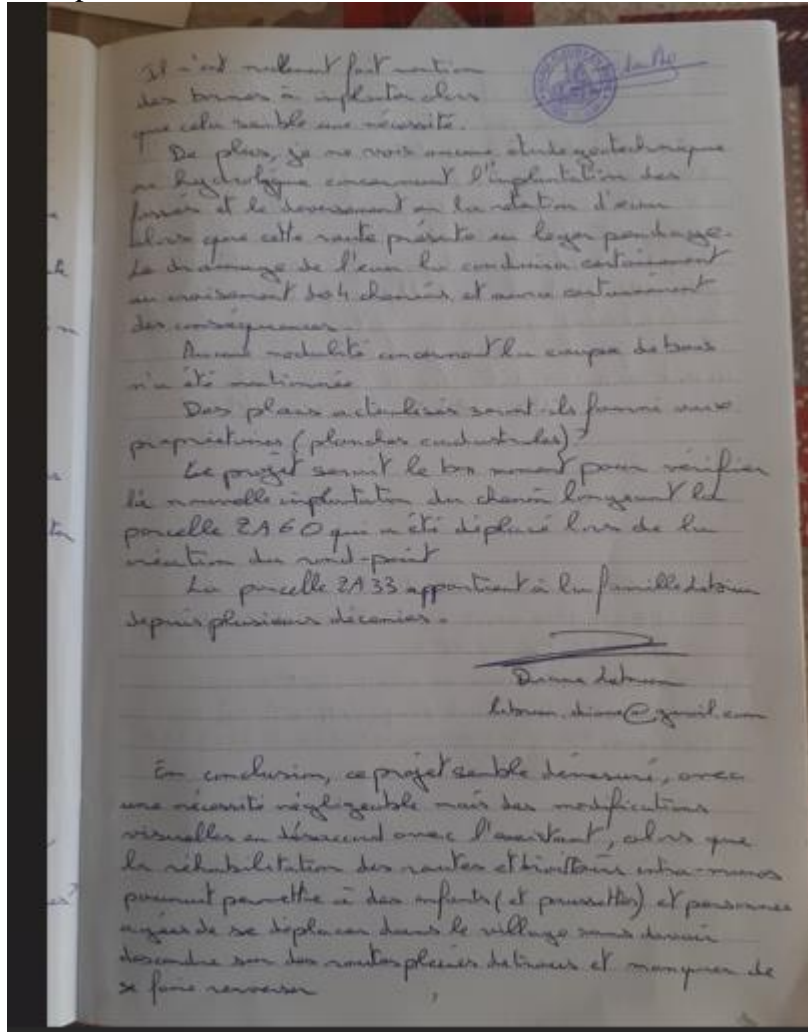 Il n'est nullement fait mention
des bornes à implanter alors
que cela semble une nécessité.
De plus, je ne vois aucune étude géotechnique
ni hydrologique concernant l'implantation des
fossés et le déversement en la d'eau
alors que cette route présente un léger pendage.
Le drainage de l'eau la conduira certainement
au croisement des 4 chemins et aura certainement
des conséquences.
Aucune modalité concernant la coupe de bois
n'a été mentionnée
Des plans actualisés seront-ils fourni aux
propriétaires (planches cadastrales)?
Le projet serait le bon moment pour vérifier
la nouvelle implantation du chemin longeant la
parcelle ZA60 qui a été déplacé lors de la
création du rond-point
La parcelle ZA33 appartient à la famille Lebrun
depuis plusieurs décennies.
Diane Lebrun
lebrun.diane@gmail.com
En conclusion, ce projet semble démesuré, avec
une nécessité négligeable mais des modifications
visuelles en désaccord avec l'existant, alors que
la réhabilitation des routes et trottoirs intra-muros
pourrait permettre à des enfants (et poussettes) et personnes
agées de se déplacer dans le village sans devoir
descendre sur des routes pleines de trous et manquer de
se faire renverser